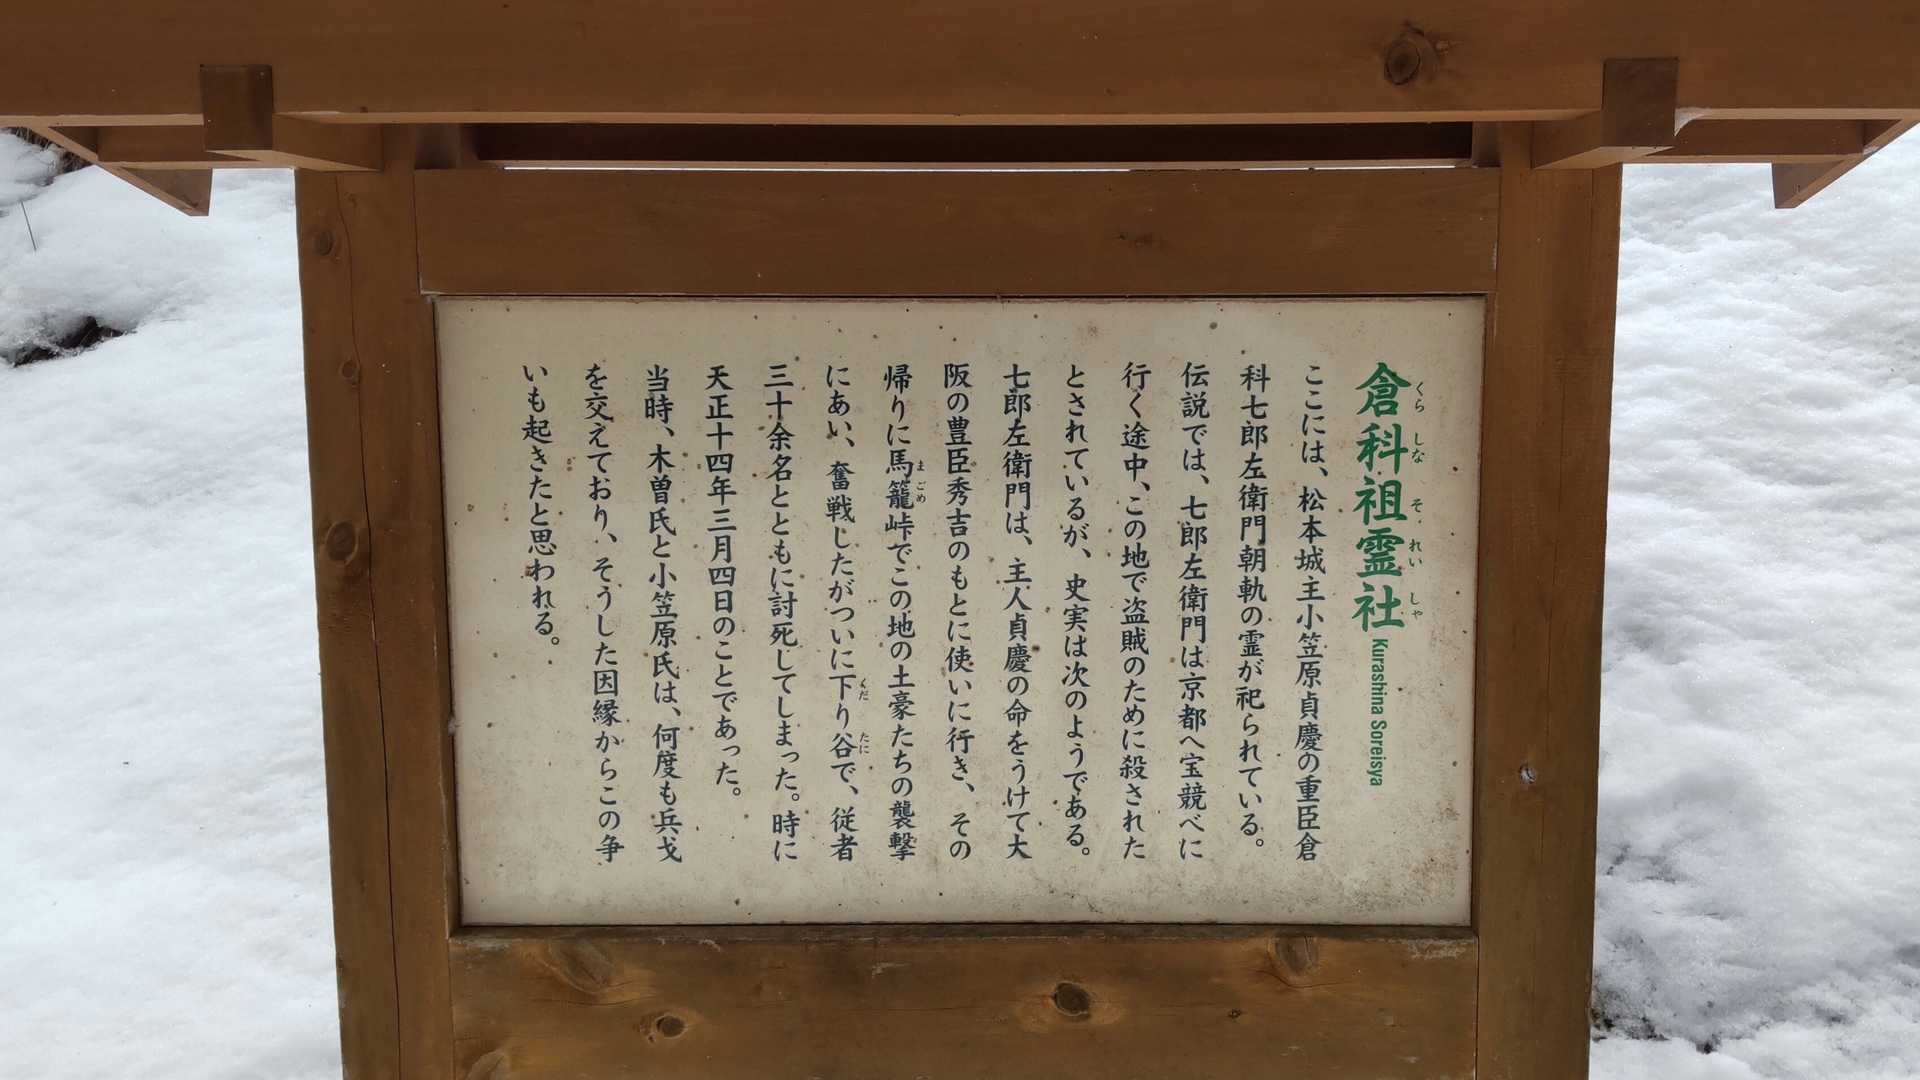 倉科祖霊社 Kurashina Soreisya
くら しな そ れい しゃ
ここには、松本城主小笠原貞慶の重臣倉
科七郎左衛門朝軌の霊が祀られている。
伝説では、七郎左衛門は京都へ宝競べに
行く途中、この地で盗賊のために殺された
とされているが、史実は次のようである。
七郎左衛門は、主人貞慶の命をうけて大
阪の豊臣秀吉のもとに使いに行き、その
帰りに馬籠峠でこの地の土豪たちの襲撃
まごめ
にあい、奮戦したがついに下り谷で、従者
くだ たに
三十余名とともに討死してしまった。時に
天正十四年三月四日のことであった。
当時、木曽氏と小笠原氏は、何度も兵戈
を交えており、そうした因縁からこの争
いも起きたと思われる。